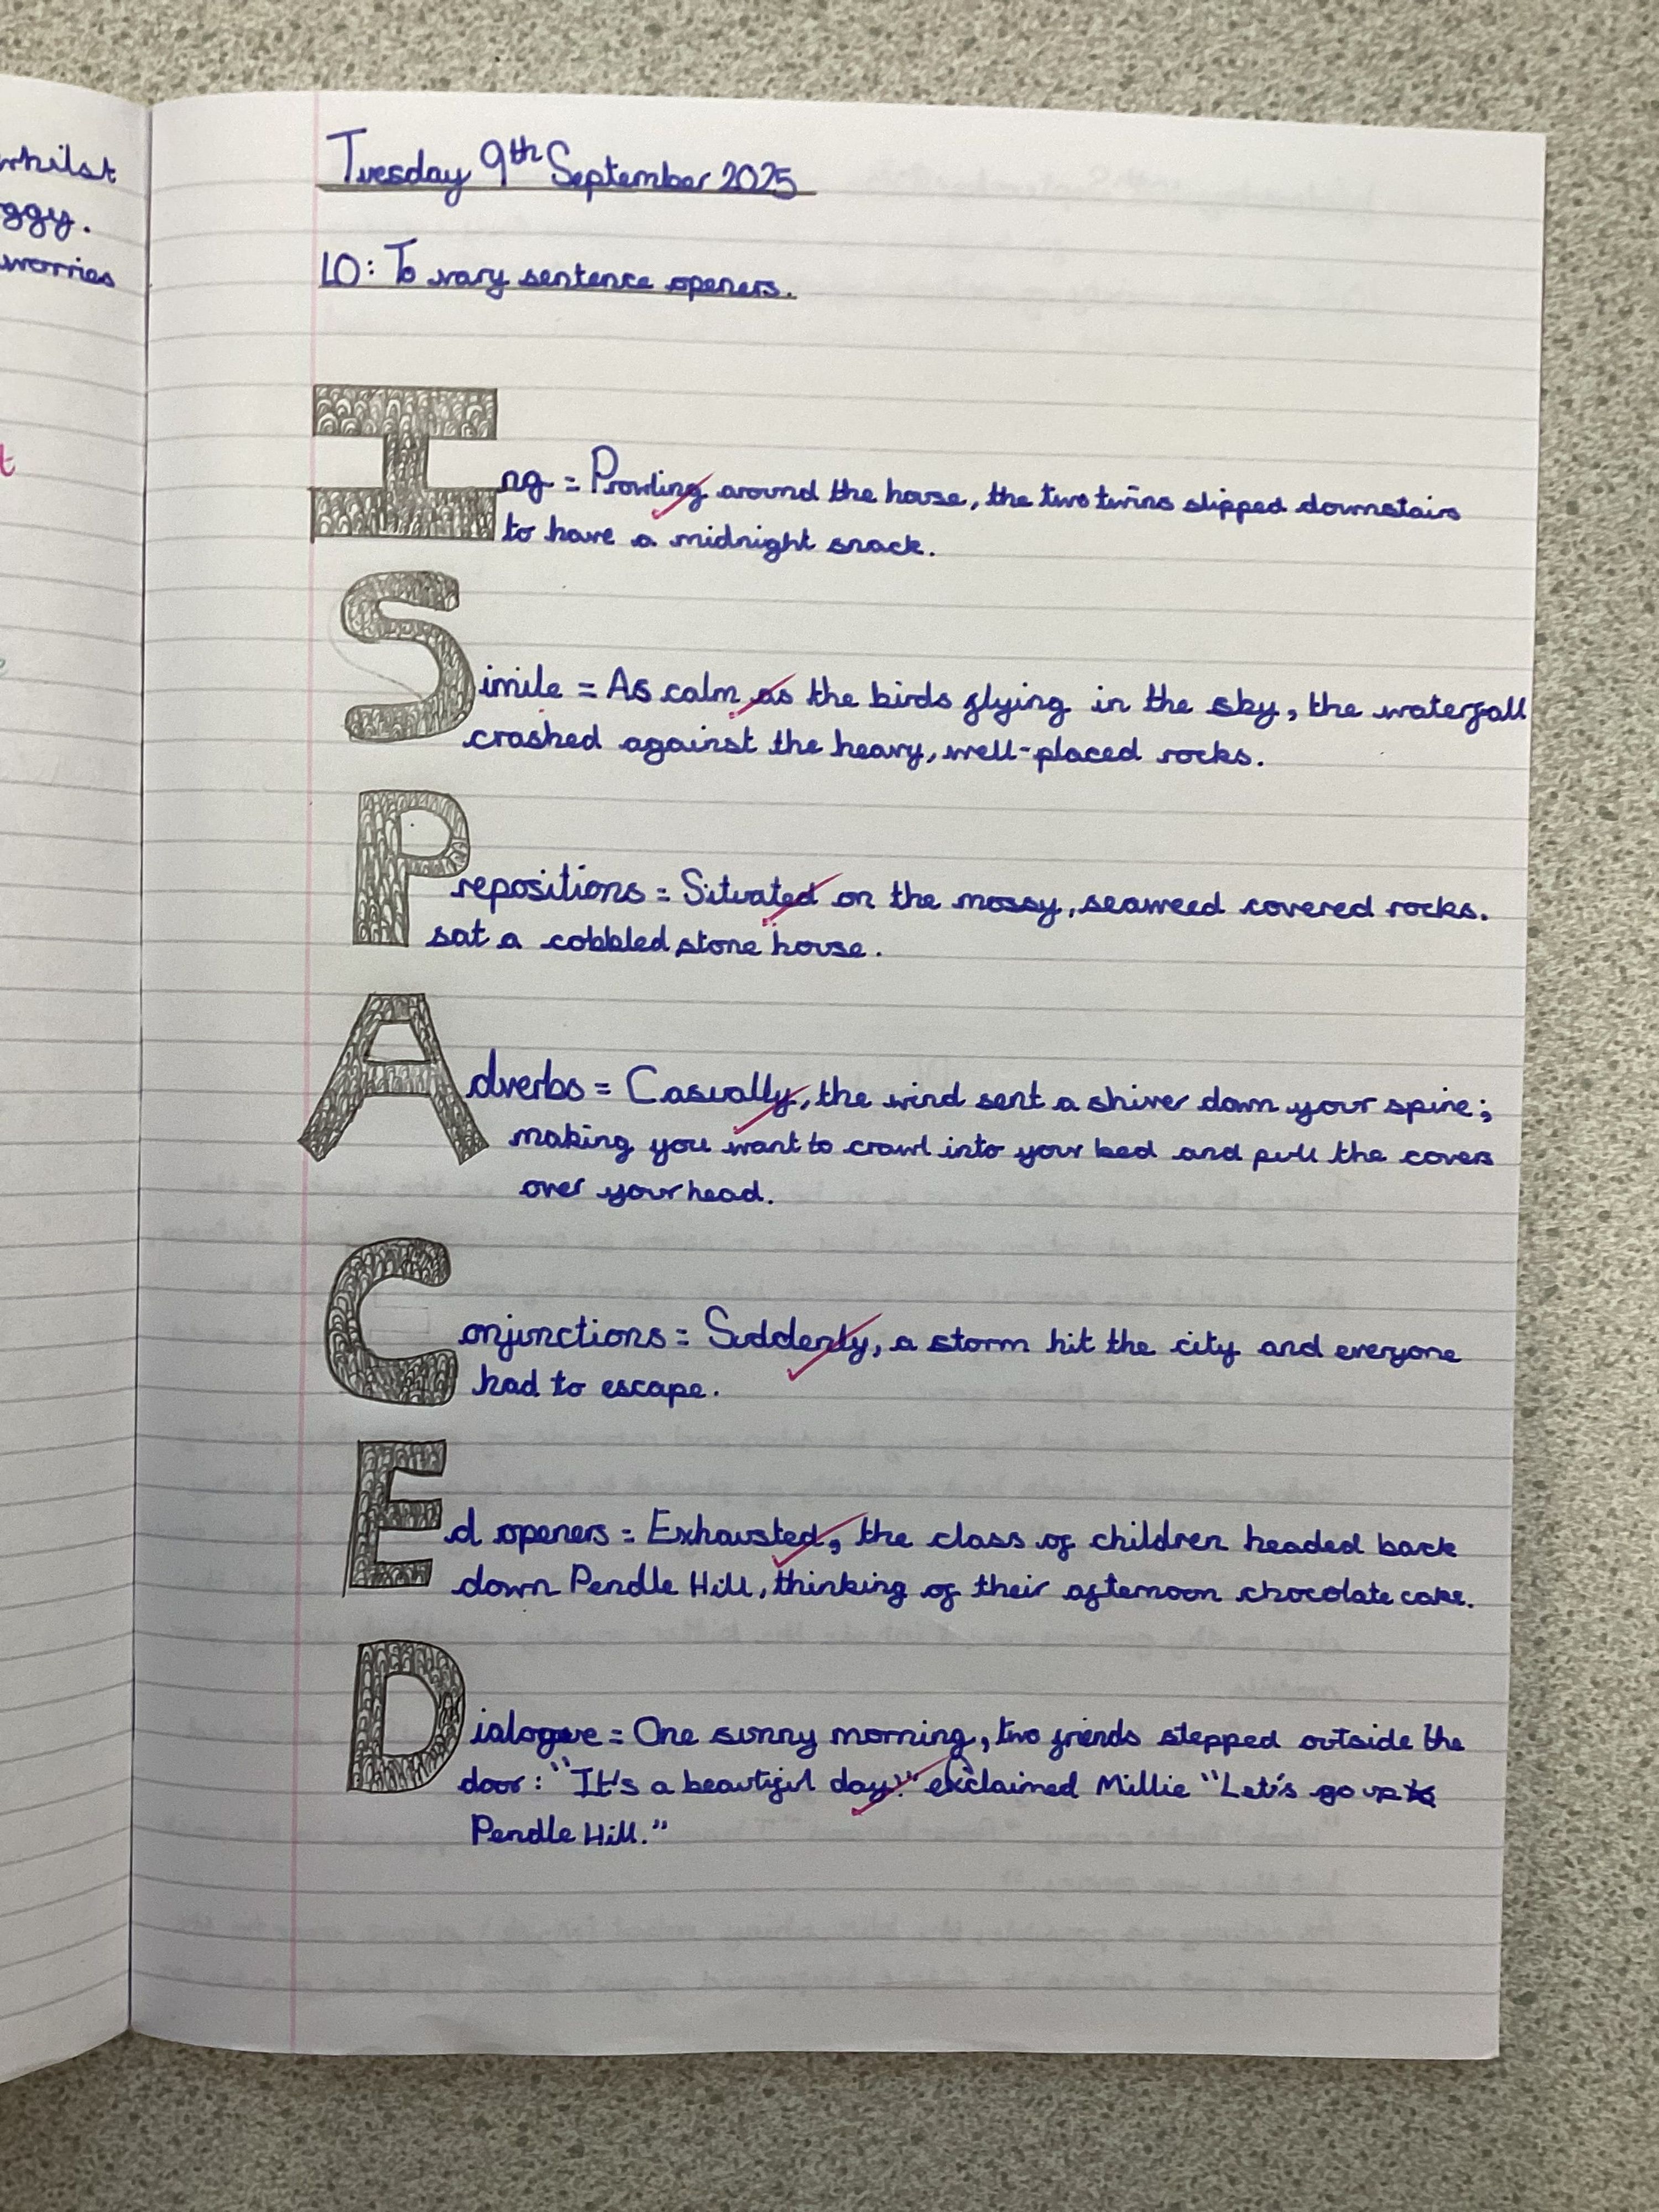 whilst
ggy.
worries
t
e
Tuesday 9th September 2025
LO: To vary sentence openers.
Ing = Prowling around the house, the two twins slipped downstairs
to have a midnight snack.
Simile = As calm as the birds flying in the sky, the waterfall
crashed against the heavy, well-placed rocks.
Prepositions = Situated on the mossy, seaweed covered rocks.
sat a cobbled stone house.
Adverbs = Casually, the wind sent a shiver down your spine;
making you want to crawl into your bed and pull the covers
over your head.
Conjunctions = Suddenly, a storm hit the city and everyone
had to escape.
Ed openers = Exhausted, the class of children headed back
down Pendle Hill, thinking of their afternoon chocolate cake.
Dialogue = One sunny morning, two friends stepped outside the
door: "It's a beautiful day!" exclaimed Millie "Let's go up
Pendle Hill."